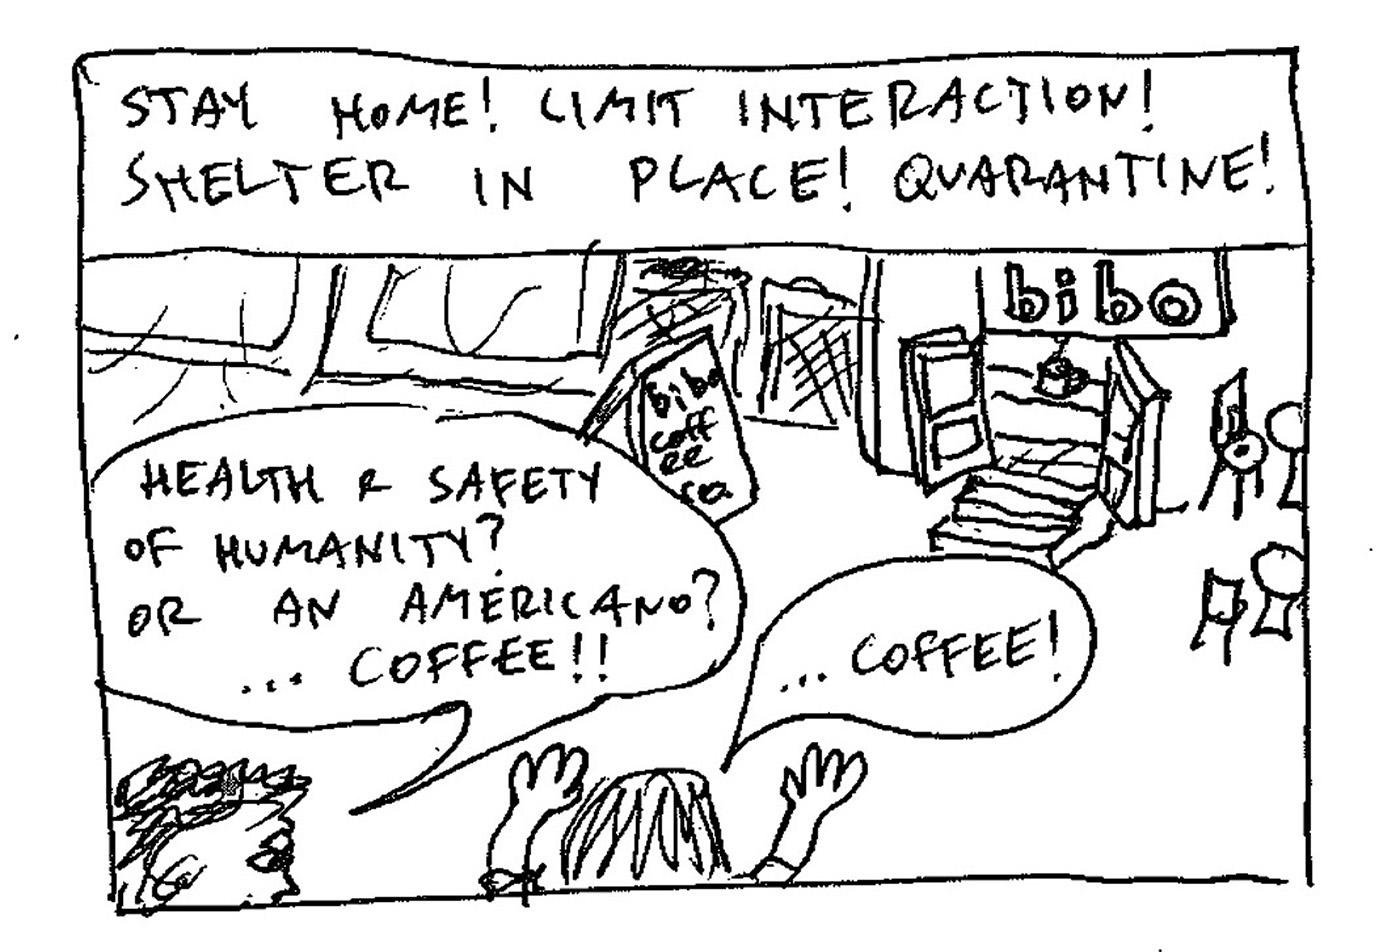 STAY HOME! LIMIT INTERACTION!
SHELTER IN PLACE! QUARANTINE!
bibo
bibo
coff
ee
co
HEALTH & SAFETY
OF HUMANITY?
OR AN AMERICANO?
... COFFEE!!
... COFFEE!